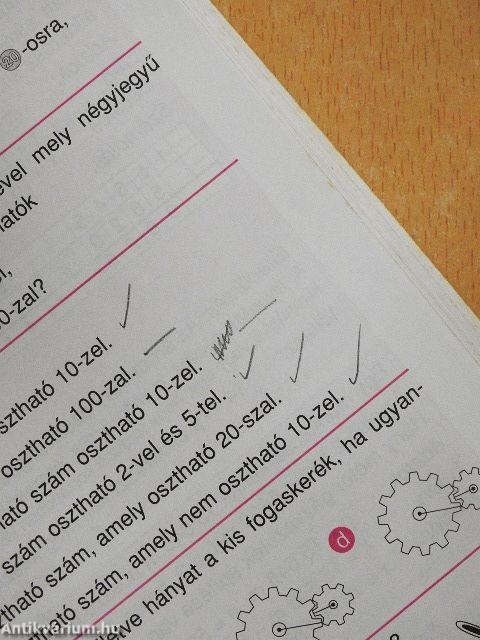 20 -osra,
ével mely négyjegyű
hatók
0-zal?
osztható 10-zel.
osztható 100-zal.
ható szám osztható 10-zel.
szám osztható 2-vel és 5-tel.
tható szám, amely osztható 20-szal.
ható szám, amely nem osztható 10-zel.
hányat a kis fogaskerék, ha ugyan-
d
Antikvárium.hu